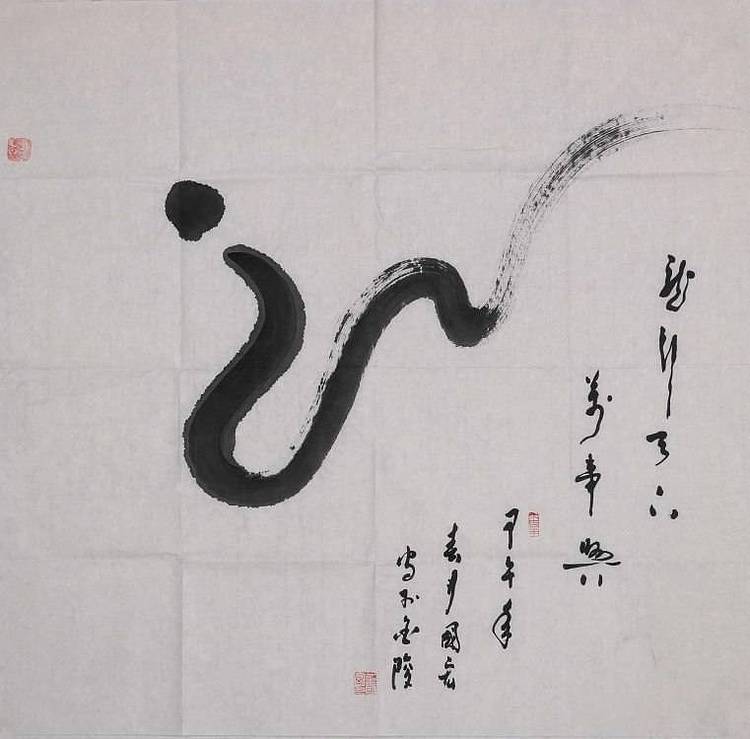 龍行天下
萬事興
甲午年
春國
寫於金陵